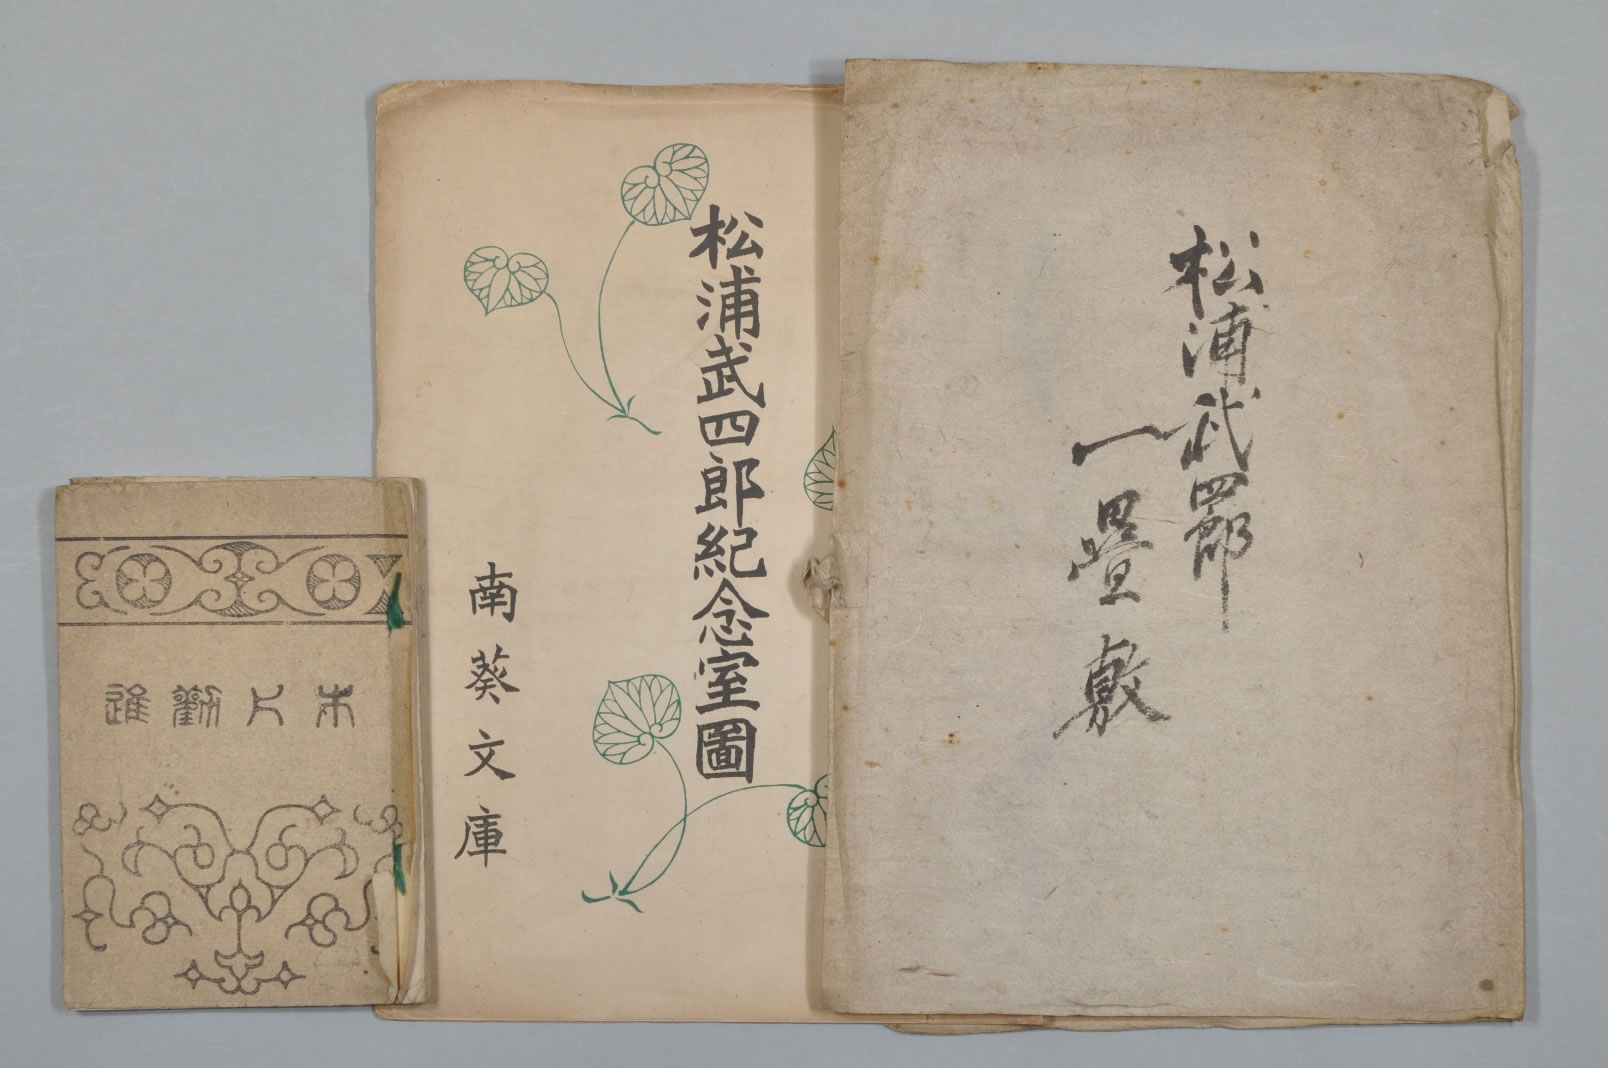 松浦武四郎
一疊敷
松浦武四郎紀念室圖
南葵文庫
木片勸進